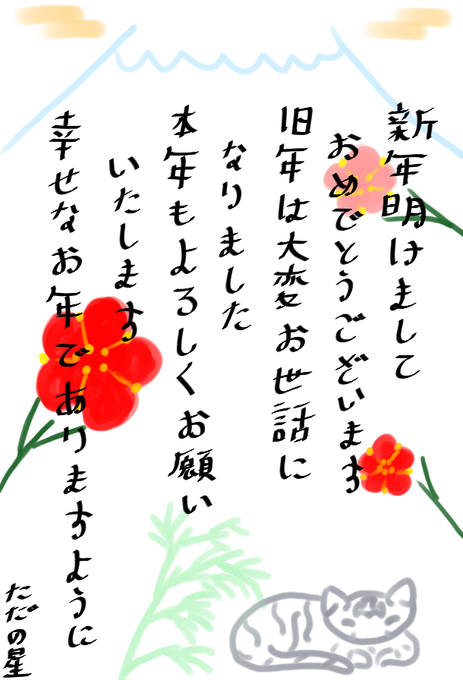 新年明けまして
おめでとうございます
旧年は大変お世話に
なりました
本年もよろしくお願い
いたします
幸せなお年でありますように
ただの星